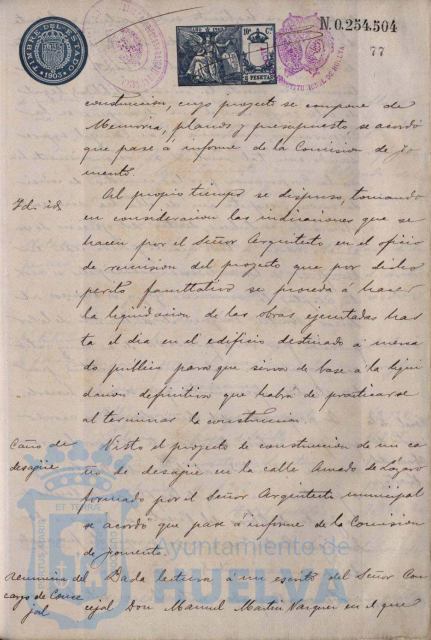 TIMBRE DEL ESTADO
1903
AÑO DE 1903
10ª C.
2 PESETAS
N.0.254.504
77
construccion, cuyo proyecto se compone de
Memoria, planos y presupuesto se acordó
que pase á informe de la Comision de fo
mento.
Id. id.
Al propio tiempo se dispuso, tomando
en consideracion las indicaciones que se
hacen por el Señor Arquitecto, en el oficio
de remision del proyecto que por dicho
perito facultativo se proceda á hacer
la liquidacion de las obras ejecutadas has
ta el dia en el edificio destinado á merca
do publico para que sirva de base á la liqui
dacion definitiva que habrá de practicarse
al terminar la construccion
Caño de
desagüe
Visto el proyecto de construccion de un ca
ño de desagüe en la calle Amado de Lazaro
formado por el Señor Arquitecto municipal
se acordó que pase á informe de la Comision
de fomento.
Renuncia del
cargo de Conce
jal
Dada lectura á un escrito del Señor Con
cejal Don Manuel Martin Vazquez en el que
Ayuntamiento de
HUELVA